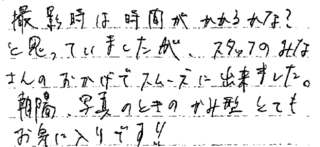 撮影時は時間がかかるかな？
と思っていましたが、スタッフのみな
さんのおかげでスムーズに出来ました。
朝陽、写真のときのかみ型とても
お気に入りです!!